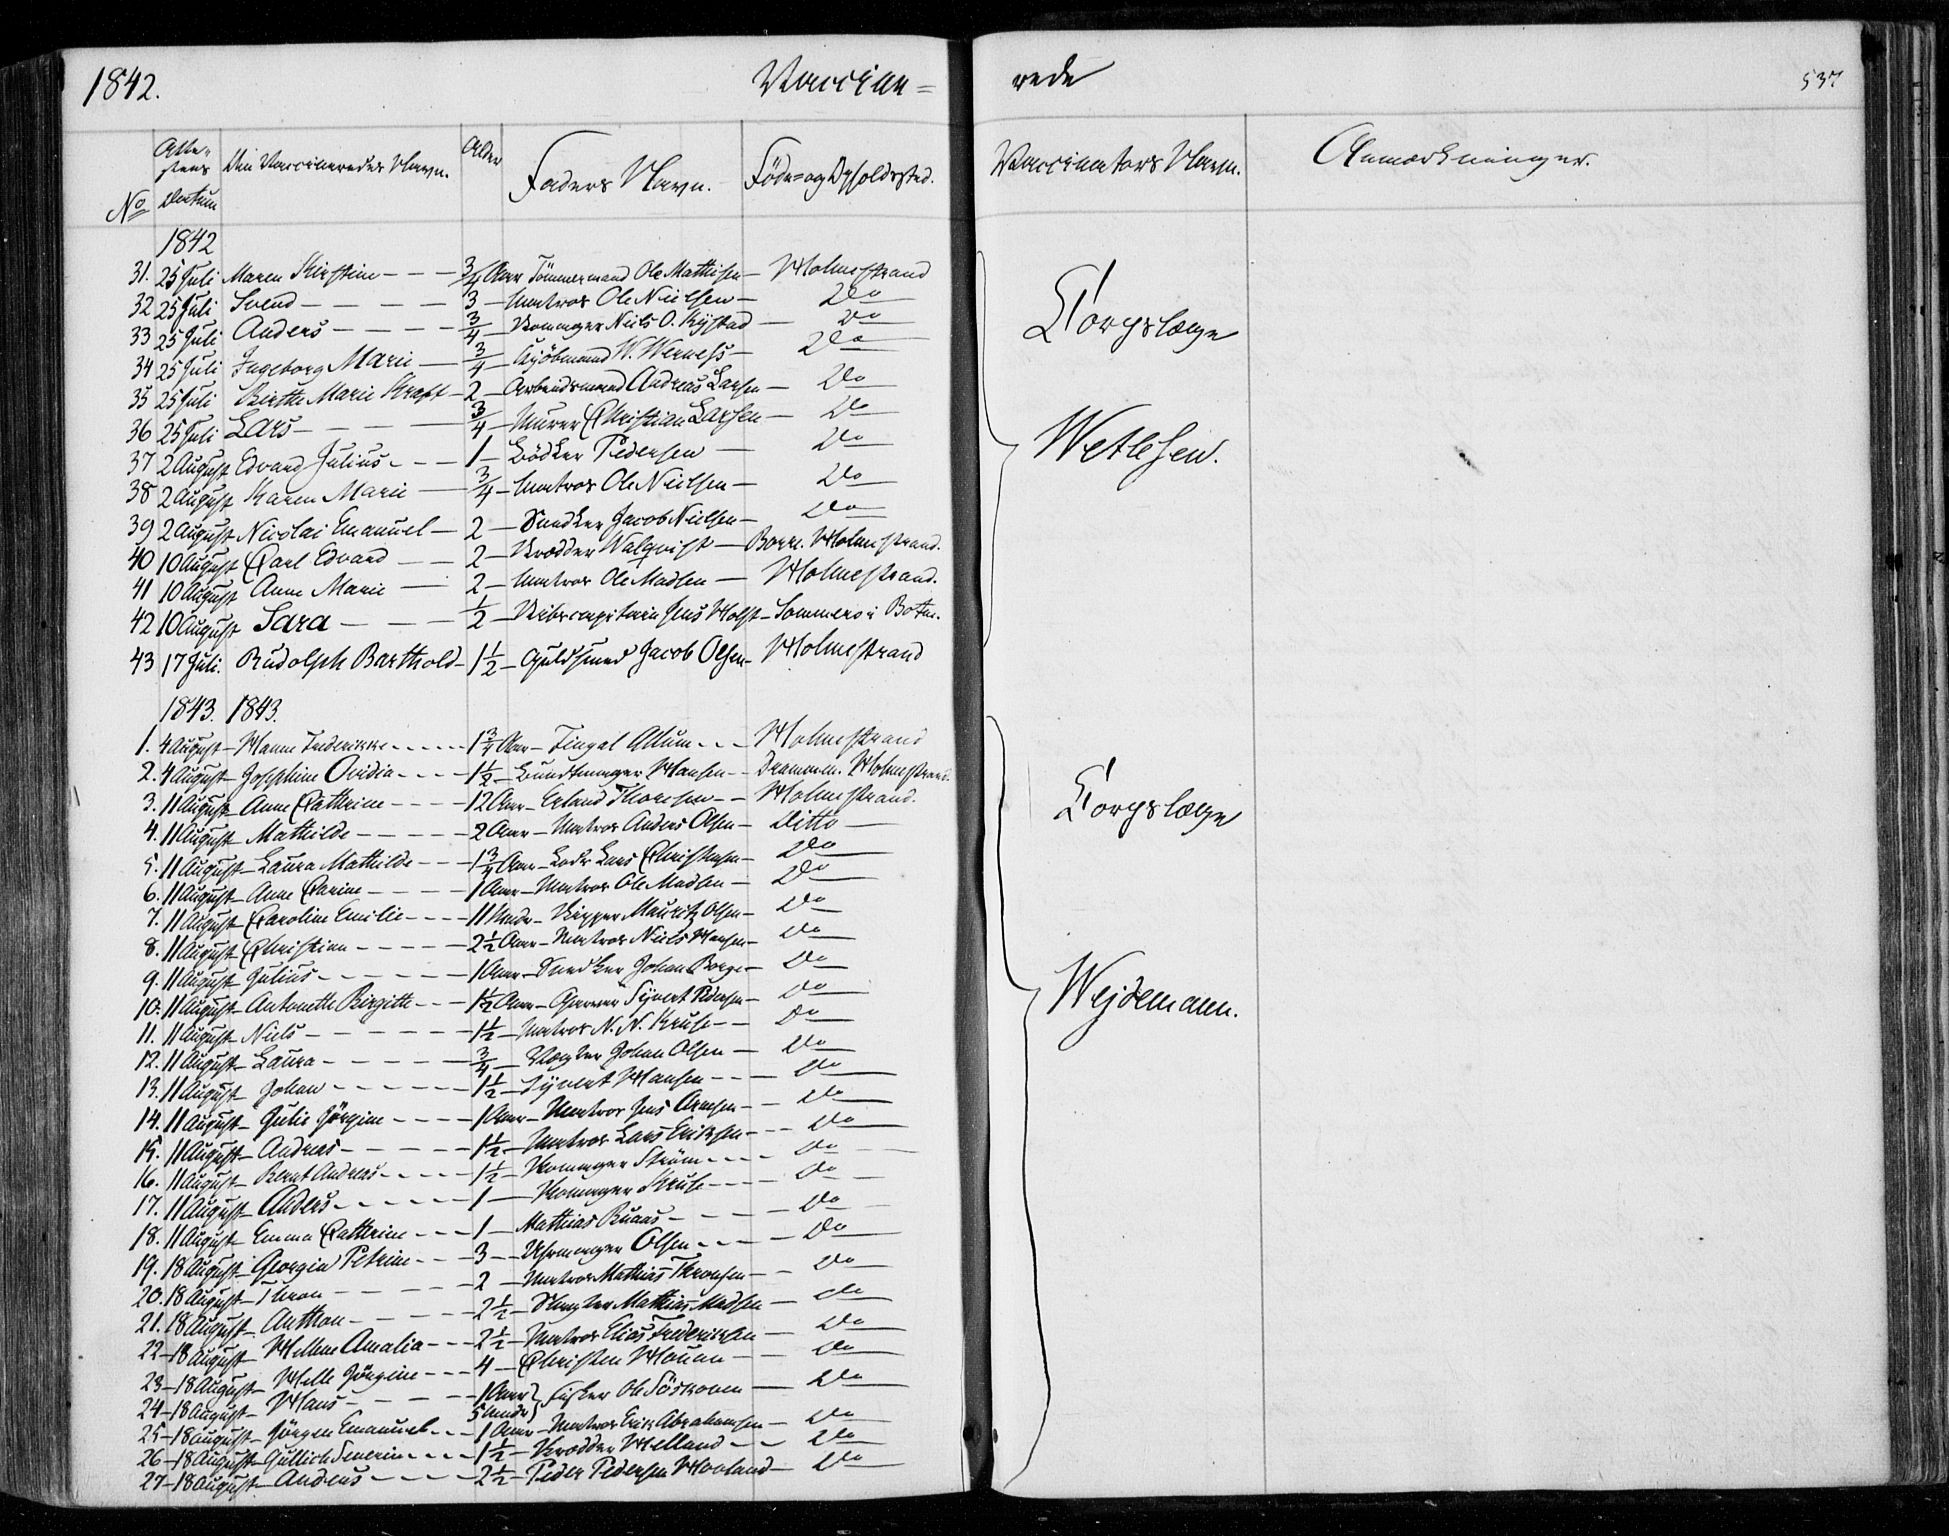 1842. Vaccine= rede 537
No Attestens Datum Den Vaccineredes Navn. Alder Faders Navn. Føde= og Opholdssted. Vaccinators Navn. Anmærkninger.
1842
31. 25 Juli Maren Kirstine 3/4 Aar Tømmermand Ole Mathisen Holmestrand
32 25 Juli Svend 3 Matros Ole Nielsen Do
33 25 Juli Anders 3/4 Niels O. Kystad Do
34 25 Juli Ingeborg Marie 3/4 Kjøbmand W. Do
35 25 Juli Birthe Marie Kraft 2 Arbeidsmand Andreas Larsen Do
36 25 Juli Lars 3/4 Murer Christian Larsen Do
37 2 August Edvard Julius 1 Bødker Pedersen Do
38 2 August Karen Marie 3/4 Matros Ole Nielsen Do
39 2 August Nicolai Emanuel 2 Snedker Jacob Nielsen Do
40 10 August Carl Edvard 2 Skrædder Walqvist Borre. Holmestrand.
41 10 August Anne Marie 2 Matros Ole Madsen Holmestrand.
42 10 August Sara 1/2 Skibscapitain Jens Holst Sommero i Botne.
43 17 Juli. Rudolph Barthold 1 1/2 Guldsmed Jacob Olsen Holmestrand
Corpslæge
Wetlesen.
1843. 1843.
1. 4 August Hanne Frederikke 1 3/4 Aar Fingal Allum Holmestrand
2. 4 August Josephine Ovidia 1 1/2 Bundtmager Hansen Drammen. Holmestrand
3. 11 August Anne Cathrine 12 Aar Erland Thoresen Holmestrand.
4. 11 August Mathilde 2 Aar Matros Anders Olsen Ditto
5. 11 August Laura Mathilde 1 3/4 Aar Lods Lars Christensen Do
6. 11 August Anne Carine 1 Aar Matros Ole Madsen Do
7. 11 August Caroline Emilie 11 Mdr Skipper Mauritz Olsen Do
8. 11 August Christian 2 1/2 Aar Matros Niels Hansen Do
9. 11 August Julius 1 Aar Snedker Johan Borge Do
10. 11 August Antonette Birgitte 1 1/2 Aar Garver Syvert Pedersen Do
11. 11 August Niels 1 1/2 Matros N. N. Kruse Do
12. 11 August Laura 3/4 Vægter Johan Olsen Do
13. 11 August Johan 1 1/2 Syvert Hansen Do
14. 11 August Julie Jørgine 1 Aar Matros Jens Arnesen Do
15. 11 August Andreas 1 1/2 Matros Lars Eriksen Do
16. 11 August Bernt Andreas 1 1/2 Strøm Do
17. 11 August Anders 1 Kruse Do
18. 11 August Emma Cathrine 1 Mathias Buaas Do
19. 18 August Georgia Petrine 3 Uhrmager Olsen Do
20. 18 August Thron 2 Matros Mathias Thronsen Do
21. 18 August Anthon 2 1/2 Slagter Mathias Madsen Do
22 18 August Helene Amalia 2 1/2 Matros Elias Frederiksen Do
23 18 August Helle Jørgine 4 Christen Houan Do
24 18 August Hans 1 Aar 5 Mdr Fisker Ole Søskoven Do
25 18 August Jørgen Emanuel 1 Aar Matros Erik Abrahamsen Do
26 18 August Gullich Severin 1 1/2 Skrædder Helland Do
27 18 August Andreas 2 1/2 Peder Pedersen Hovland Do
Corpslæge
Wejdemann.